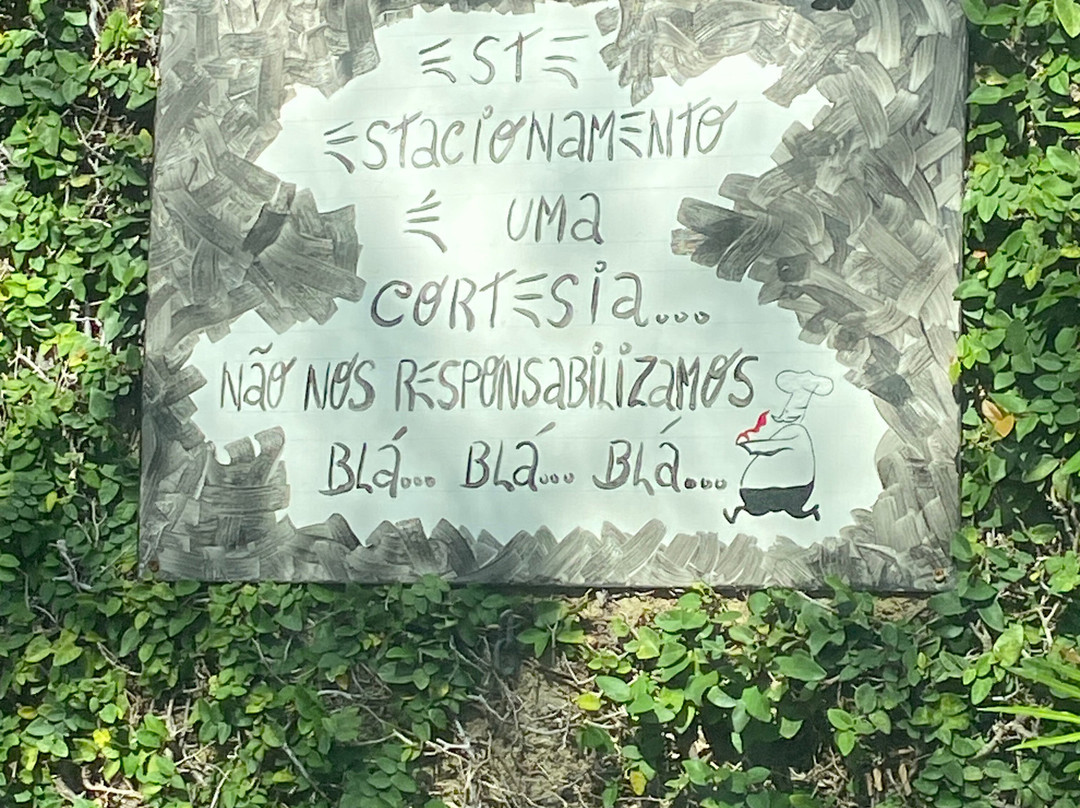 EST
ESTACIONAMENTO
É UMA
CORTESIA...
NÃO NOS RESPONSABILIZAMOS
BLÁ... BLÁ... BLÁ...